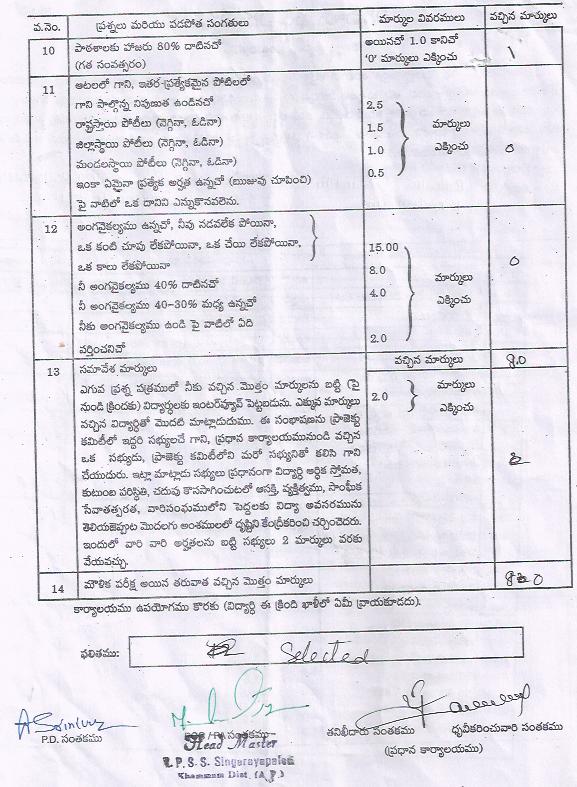 ప.నెం. ప్రశ్నలు మరియు పడపోత సంగతులు మార్కుల వివరములు వచ్చిన మార్కులు
10 పాఠశాలకు హాజరు 80% దాటినచో అయినచో 1.0 కానిచో 1
(గత సంవత్సరం) '0' మార్కులు ఎక్కించు
11 ఆటలలో గాని, ఇతర-ప్రత్యేకమైన పోటిలలో
గాని పాల్గొన్న నిపుణుత ఉండినచో 2.5
రాష్ట్రస్తాయి పోటీలు (నెగ్గినా, ఓడినా) 1.5 మార్కులు
జిల్లాస్థాయి పోటీలు (నెగ్గినా, ఓడినా) 1.0 ఎక్కించు 0
మండలస్థాయి పోటీలు (నెగ్గినా, ఓడినా) 0.5
ఇంకా ఏమైనా ప్రత్యేక అర్హత ఉన్నచో (ఋజువు చూపించి)
పై వాటిలో ఒక దానిని ఎన్నుకొనవలెను.
12 అంగవైకల్యము ఉన్నచో, నీవు నడవలేక పోయినా,
ఒక కంటి చూపు లేకపోయినా, ఒక చేయి లేకపోయినా, 15.00
ఒక కాలు లేకపోయినా 8.0 0
నీ అంగవైకల్యము 40% దాటినచో 4.0 మార్కులు
నీ అంగవైకల్యము 40-30% మధ్య ఉన్నచో ఎక్కించు
నీకు అంగవైకల్యము ఉండి పై వాటిలో ఏది 2.0
వర్తించనిచో
13 సమావేశ మార్కులు వచ్చిన మార్కులు 8.0
ఎగువ ప్రశ్న పత్రములో నీకు వచ్చిన మొత్తం మార్కులను బట్టి (పై 2.0 మార్కులు
నుండి క్రిందకు) విద్యార్థులకు ఇంటర్‌వ్యూవ్ పెట్టబడును. ఎక్కువ మార్కులు ఎక్కించు
వచ్చిన విద్యార్థితో మొదటి మాట్లాడుదుము. ఈ సంభాషణను ప్రాజెక్టు
కమిటీలో ఇద్దరి సభ్యులచే గాని, ప్రధాన కార్యాలయమునుండి వచ్చిన
ఒక సభ్యుడు, ప్రాజెక్టు కమిటీలోని మరో సభ్యునితో కలిసి గాని
చేయుదురు. ఇట్లా మాట్లాడు సభ్యులు ప్రధానంగా విద్యార్థి ఆర్థిక స్తోమత,
కుటుంబ పరిస్థితి, చదువు కొనసాగించుటలో ఆసక్తి, వ్యక్తిత్వము, సాంఘీక
సేవాతత్పరత, వారిసంఘములోని పెద్దలకు విద్యా అవసరమును
తెలియజెప్పుట మొదలగు అంశములలో దృష్టిని కేంద్రీకరించి చర్చించెదరు.
ఇందులో వారి వారి అర్హతలను బట్టి సభ్యులు 2 మార్కులు వరకు
వేయవచ్చు.
14 మౌళిక పరీక్ష అయిన తరువాత వచ్చిన మొత్తం మార్కులు
కార్యాలయము ఉపయోగము కొరకు (విద్యార్థి ఈ క్రింది ఖాళీలో ఏమీ వ్రాయకూడదు).
ఫలితము: Selected
P.D. సంతకము సంతకము తనిఖీదారు సంతకము ధృవీకరించువారి సంతకము
Head Master (ప్రధాన కార్యాలయము)
P.S.S. Singarayapalem
Khammam Dist. (A.P.)